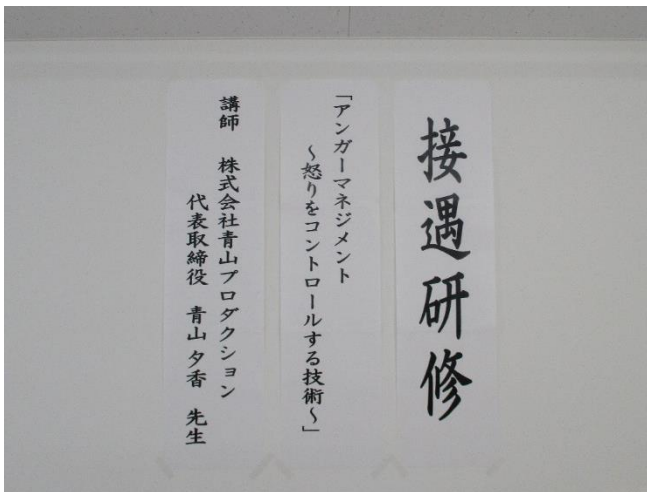 接遇研修
「アンガーマネジメント
～怒りをコントロールする技術～」
講師　株式会社青山プロダクション
代表取締役　青山夕香　先生